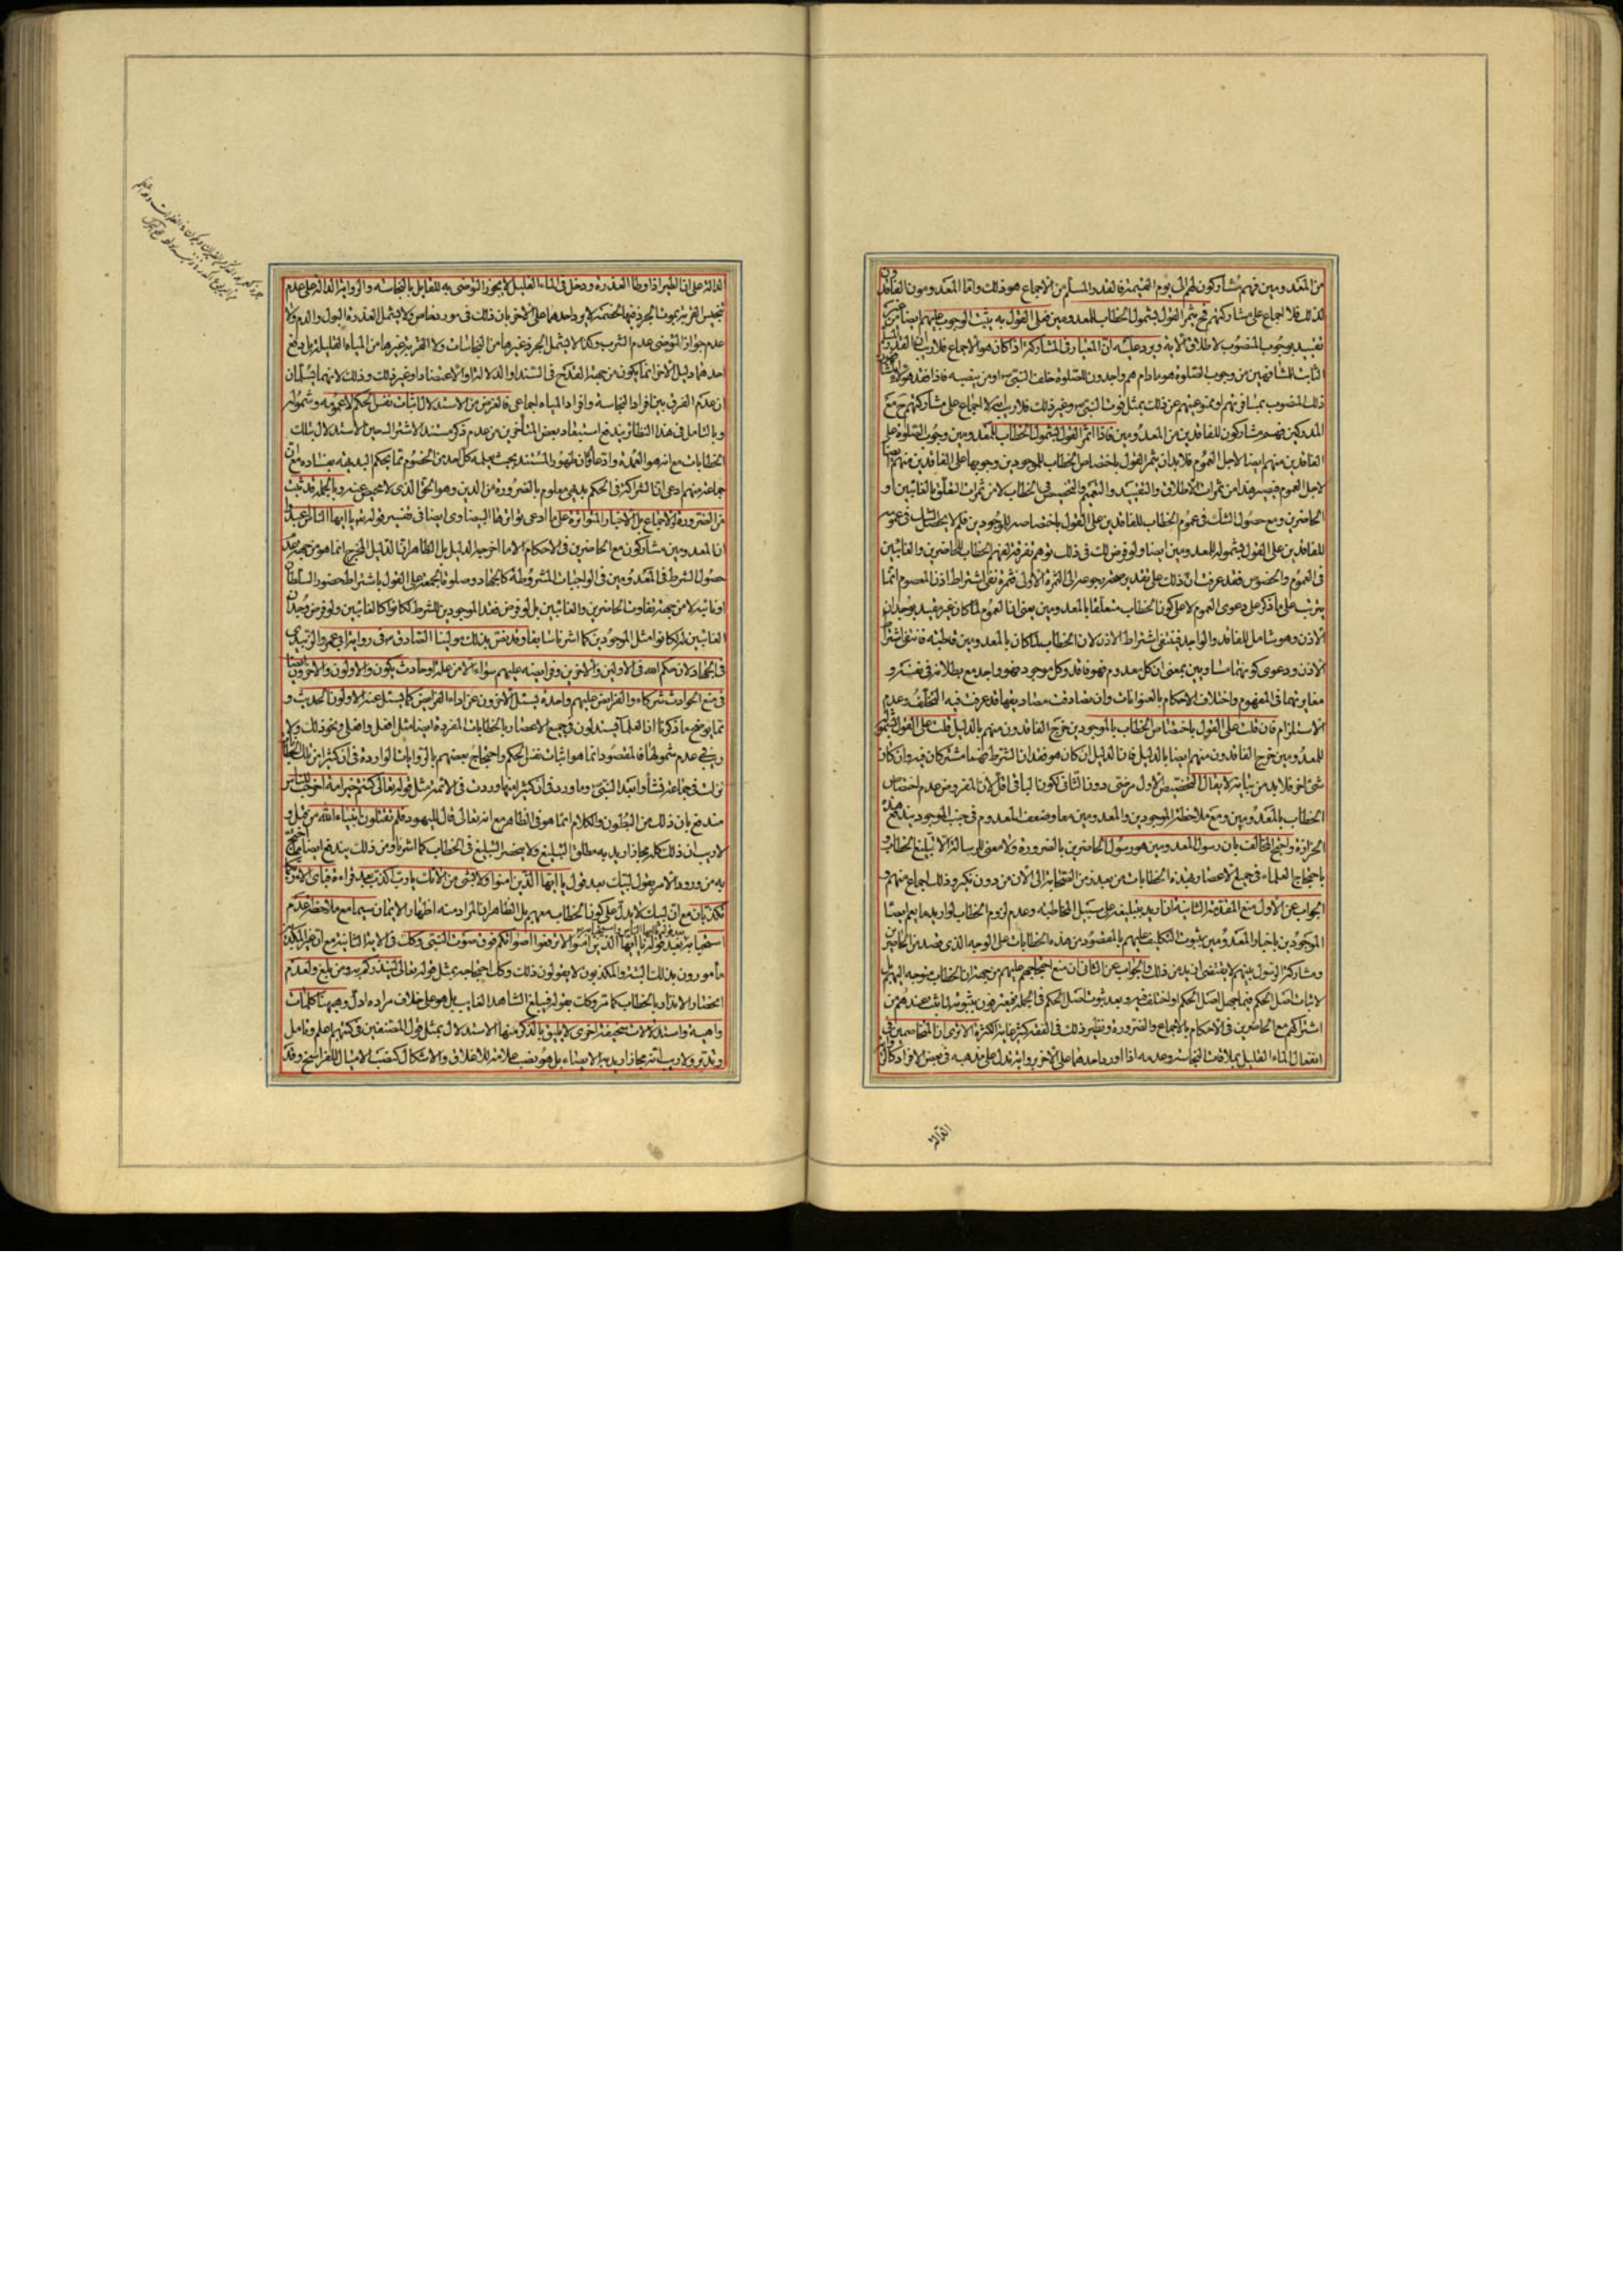 من المعدومين فهم مشاركون لهم الى يوم القيمة فالقدر المسلم من الاجماع هو ذلك واما المعدومون الفاقدون
لذلك فلا اجماع على مشاركتهم فح يثمر القول بشمول الخطاب للمعدومين فعلى القول به يثبت الوجوب عليهم ايضا من غير
تقييد بوجوب المنصوب لاطلاق الاية ويرد عليه ان المعيار في المشاركة اذا كان هو الاجماع فلا ريب ان القدر المسلم
الثابت للمشافهين من وجوب الصلوة هو ما دام هم واجدون للصلوة خلف النبي ص او من ينصبه فاذا فقد هؤلاء
ذلك المنصوب بمسافرتهم او ممنوعيتهم عن ذلك بمثل فوت النبي ص وغير ذلك فلا ريب انه لا اجماع على مشاركتهم ح مع
المدركين فهم مشاركون للفاقدين من المعدومين فاذا اثمر القول بشمول الخطاب للمعدومين وجوب الصلوة على
الفاقدين منهم ايضا لاجل العموم فلا بد ان يثمر القول باختصاص الخطاب للموجودين وجوبها على الفاقدين منهم ايضا
لاجل العموم فيصير هذا من ثمرات الاطلاق والتقييد والتعميم والتخصيص في الخطاب لا من ثمرات التعلق بالغائبين او
الحاضرين ومع حصول الشك في عموم الخطاب للفاقدين على القول باختصاصه للموجودين فلم لا يحصل الشك في عمومه
للفاقدين على القول بشموله للمعدومين ايضا ولو فرض لك في ذلك توهم تفرقة لفهم الخطاب للحاضرين والغائبين
في العموم والخصوص فقد عرفت ان ذلك على تقدير صحته يرجع الى الثمرة الاولى فثمرة نفي اشتراط اذن المعصوم انما
يترتب على ما ذكر على دعوى العموم لا على كون الخطاب متعلقا بالمعدومين يعني ان العموم لما كان غير مقيد بوجدان
الاذن وهو شامل للفاقد والواجد فينتفي اشتراط الاذن لا ان الخطاب لما كان بالمعدومين قاطبة فانتفى اشتراط
الاذن ودعوى كونهما متساويين بمعنى ان كل معدوم فهو فاقد وكل موجود فهو واجد مع بطلانه في نفسه و
مغايرتهما في المفهوم واختلاف الاحكام بالعنوانات وان تصادفت مصاديقها قد عرفت فيه التخلف وعدم
الاستلزام فان قلت على القول باختصاص الخطاب بالموجودين خرج الفاقدون منهم بالدليل قلت على القول بشموله
للمعدومين خرج الفاقدون منهم ايضا بالدليل فان الدليل ان كان هو فقدان الشرط فهما مشتركان فيه وان كان
شيئ اخر فلا بد من بيانه لا يقال التخصيص في الاول مرضي دون الثاني لكون الباقي اقل لان المفروض عدم اختصاص
الخطاب بالمعدومين ومع ملاحظة الموجودين والمعدومين معا وضعف المعدوم في جنب الموجود يندفع هذه
الحزازة واحتج المخالف بان رسول المعدومين هو رسول الحاضرين بالضرورة ولا معنى للرسالة الا تبليغ الخطاب و
باحتجاج العلماء في جميع الاعصار بهذه الخطابات من بعد زمن الصحابة الى الان من دون نكير وذلك اجماع منهم و
الجواب عن الاول منع المقدمة الثانية ان اريد بتبليغه على سبيل المخاطبة وعدم لزوم الخطاب لو اريد ما يعم ايضا
الموجودين باخبار المعدومين بثبوت التكليف عليهم بالمقصود من هذه الخطابات على الوجه الذي قصد من الحاضرين
ومشاركة الرسول بينهم لا يقتضي ازيد من ذلك والجواب عن الثاني ان منع احتجاجهم عليهم من جهة ان الخطاب متوجه اليهم بل
لاثبات اصل الحكم فيما جهل اصل الحكم او اختلف فيه وبعد ثبوت اصل الحكم في الجملة فيعترفون بثبوته لما ثبت عندهم من
اشتراكهم مع الحاضرين في الاحكام بالاجماع والضرورة ونظير ذلك في الفقه كثير غاية الكثرة الا ترى ان المتخاصمين في
انفعال الماء القليل بملاقات النجاسة وعدمه اذا اورد احدهما على الاخر رواية تدل على مذهبه في بعض الافراد كالرواية
الدالة على ان الطير اذا وطأ العذرة ودخل في الماء القليل لا يجوز التوضي به للقائل بالنجاسة والرواية الدالة على عدم
تنجيس القربة بموت الجرذ فيها لخصمه لا يرد احدهما على الاخر بان ذلك في مورد خاص ولا يشمل العذرة البول والدم ولا
عدم جواز التوضي عدم الشرب وكذا لا يشمل الجرذ غيرها من النجاسات ولا القربة غيرها من المياه القليلة بل يدفع
احدهما دليل الاخر انما يكون من جهة القدح في السند او الدلالة او الاعتضاد او غير ذلك وذلك لانهما يسلمان
ان عدم الفرق بين افراد النجاسة وافراد المياه اجماعي فالغرض من الاستدلال اثبات نفس الحكم لا عمومه وشموله
وبالتامل في هذا النظائر يندفع استبعاد بعض المتاخرين من عدم ذكر مستند الاشتراك حين الاستدلال بتلك
الخطابات مع انه هو العمدة وادعاء ان ظهور المستند بحيث يعلمه كل احد من الخصوم مما يحكم البديهة بفساده مع ان
جماعة منهم ادعى ان الشراكة في الحكم بديهي معلوم بالضرورة من الدين وهو الحق الذي لا محيص عنه وبالجملة قد ثبت
من الضرورة والاجماع بل الاخبار المتواترة على ما ادعى تواترها البيضاوي ايضا في تفسير قوله تعالى يا ايها الناس اعبدوا
ان المعدومين مشاركون مع الحاضرين في الاحكام الا ما اخرجه الدليل بل الظاهر ان الدليل المخرج انما هو من جهة عدم
حصول الشرط في المعدومين في الواجبات المشروطة كالجهاد وصلوة الجمعة على القول باشتراط حضور السلطان
او نائبه لا من جهة تفاوت الحاضرين والغائبين بل لو فرض فقد الموجودين للشرط لكانوا كالغائبين ولو فرض وجدان
الغائبين له لكانوا مثل الموجودين كما اشرنا سابقا وقد نص بذلك مولينا الصادق ع في رواية ابي عمرو الزبيدي
في الجهاد لان حكم الله في الاولين والاخرين وفرايضه عليهم سواء الا من علة او حادث يكون والاولون والاخرون ايضا
في منع الحوادث شركاء والفرايض عليهم واحدة يسئل الاخرون عن اداء الفرايض كما يسئل عنه الاولون الحديث و
مما يوضح ما ذكرنا ان العلماء يستدلون في جميع الاعصار بالخطابات المفردة ايضا مثل افعل وافعلي ونحو ذلك ولا
ريب في عدم شمولها فالمقصود انما هو اثبات نفس الحكم واحتجاج بعضهم بالروايات الواردة في ان كثيرا من تلك الخطابات
نزلت في جماعة نشأوا بعد النبي ص وما ورد في ان كثيرا منها وردت في الائمة مثل قوله تعالى كنتم خير امة اخرجت للناس
مندفع بان ذلك من البطون والكلام انما هو في الظاهر مع انه تعالى قال لليهود فلم تقتلون انبياء الله من قبل و
لا ريب ان ذلك كله مجاز اريد به مطلق التبليغ ولا ينحصر التبليغ في الخطاب كما اشرنا ومن ذلك يندفع ايضا ما احتج
به من ورود الامر بقول لبيك بعد قول يا ايها الذين امنوا ولا بشيئ من الائك يا رب اكذب بعد قراءة فباي الاء ربكما
تكذبان مع ان لبيك لا يدل على كون الخطاب معهم بل الظاهر ان المراد منه اظهار الايمان سيما مع ملاحظة عدم
استحبابه بعد قوله يا ايها الذين امنوا لا ترفعوا اصواتكم فوق صوت النبي وكذلك في الاية الثانية مع ان غير المكذبين
مامورون بذلك البتة والمكذبون لا يقولون ذلك وكذا احتجاجه بمثل قوله تعالى لينذركم به ومن بلغ ولعدم
اختصار الانذار بالخطاب كما مر وكذلك بقوله فليبلغ الشاهد الغايب بل هو على خلاف مراده ادل وهيهنا كلمات
واهية واستدلالات سخيفة اخرى لا يليق بالذكر منها الاستدلال بمثل قول المصنفين في كتبهم اعلم وتامل
وتدبر ولا ريب انه مجاز اريد به الايصاء بل هو نصب علامة للاغلاق والاشكال كنصب الاميال للفراسخ وقد
القرائة